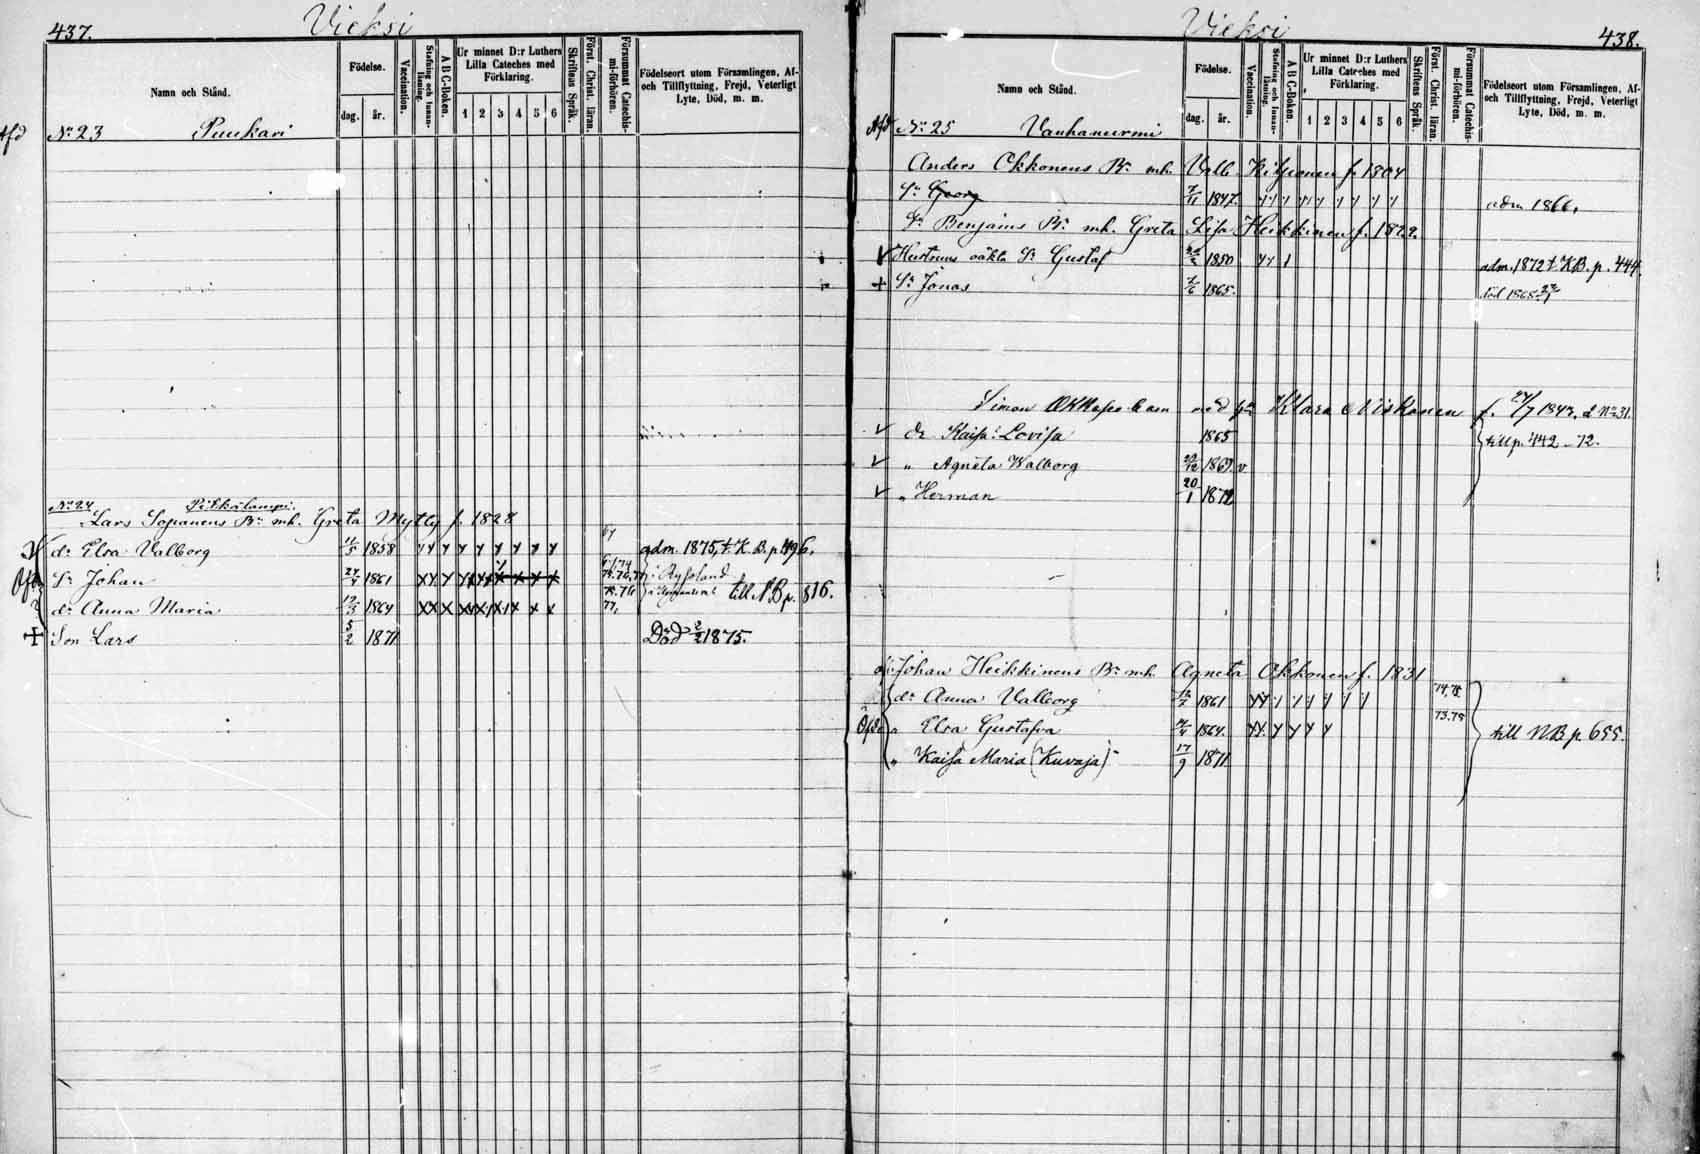 437. Vieksi
Namn och Stånd.
Födelse.
dag. år.
Vaccination.
Stafning och Innanläsning.
A B C-Boken.
Ur minnet D:r Luthers Lilla Cateches med Förklaring.
1 2 3 4 5 6
Skriftens Språk.
Först. Christ. läran.
Försummat Catechismi-förhören.
Födelseort utom Församlingen, Af- och Tillflyttning, Frejd, Veterligt Lyte, Död, m. m.
Afd No 23 Puukari
No 24 Pitkälampi.
Lars Sopanens Bn mh. Greta Mytty f. 1828
dr Elsa Valborg 11/5 1858 adm. 1875, t. K. B. p. 496.
Sn Johan 24/4 1861 Ryssland
dr Anna Maria 17/3 1864 till NB p. 816.
+ Son Lars 5/2 1871 Död 2/2 1875.
Vieksi 438.
Namn och Stånd.
Födelse.
dag. år.
Vaccination.
Stafning och Innanläsning.
A B C-Boken.
Ur minnet D:r Luthers Lilla Cateches med Förklaring.
1 2 3 4 5 6
Skriftens Språk.
Först. Christ. läran.
Försummat Catechismi-förhören.
Födelseort utom Församlingen, Af- och Tillflyttning, Frejd, Veterligt Lyte, Död, m. m.
Afd No 25 Vanhanurmi
Anders Okkonens Bn mh. Valb. f. 1804
Sn Georg 7/11 1847. adm 1866.
Sn Benjamins Bn mh. Greta Lisa Heikkinen f. 1822.
Hustruns oäkta Sn Gustaf 1850 adm. 1872 t. KB. p. 444.
+ Sn Jonas 7/6 1865. död 1868
Simon Okkosen barn med Klara Niskanen f. 27/7 1843, d No 31.
dr Kaisa Lovisa 1865 till p. 442 - 72.
" Agneta Walborg 1869 v
" Herman 20/1 1872
Johan Heikkinens Bn mh. Agneta Okkonen f. 1831
dr Anna Valborg 1861 74, 75
" Elsa Gustafva 1864. 73. 75 till NB p 655.
" Kaisa Maria (Kuvaja) 17/9 1871